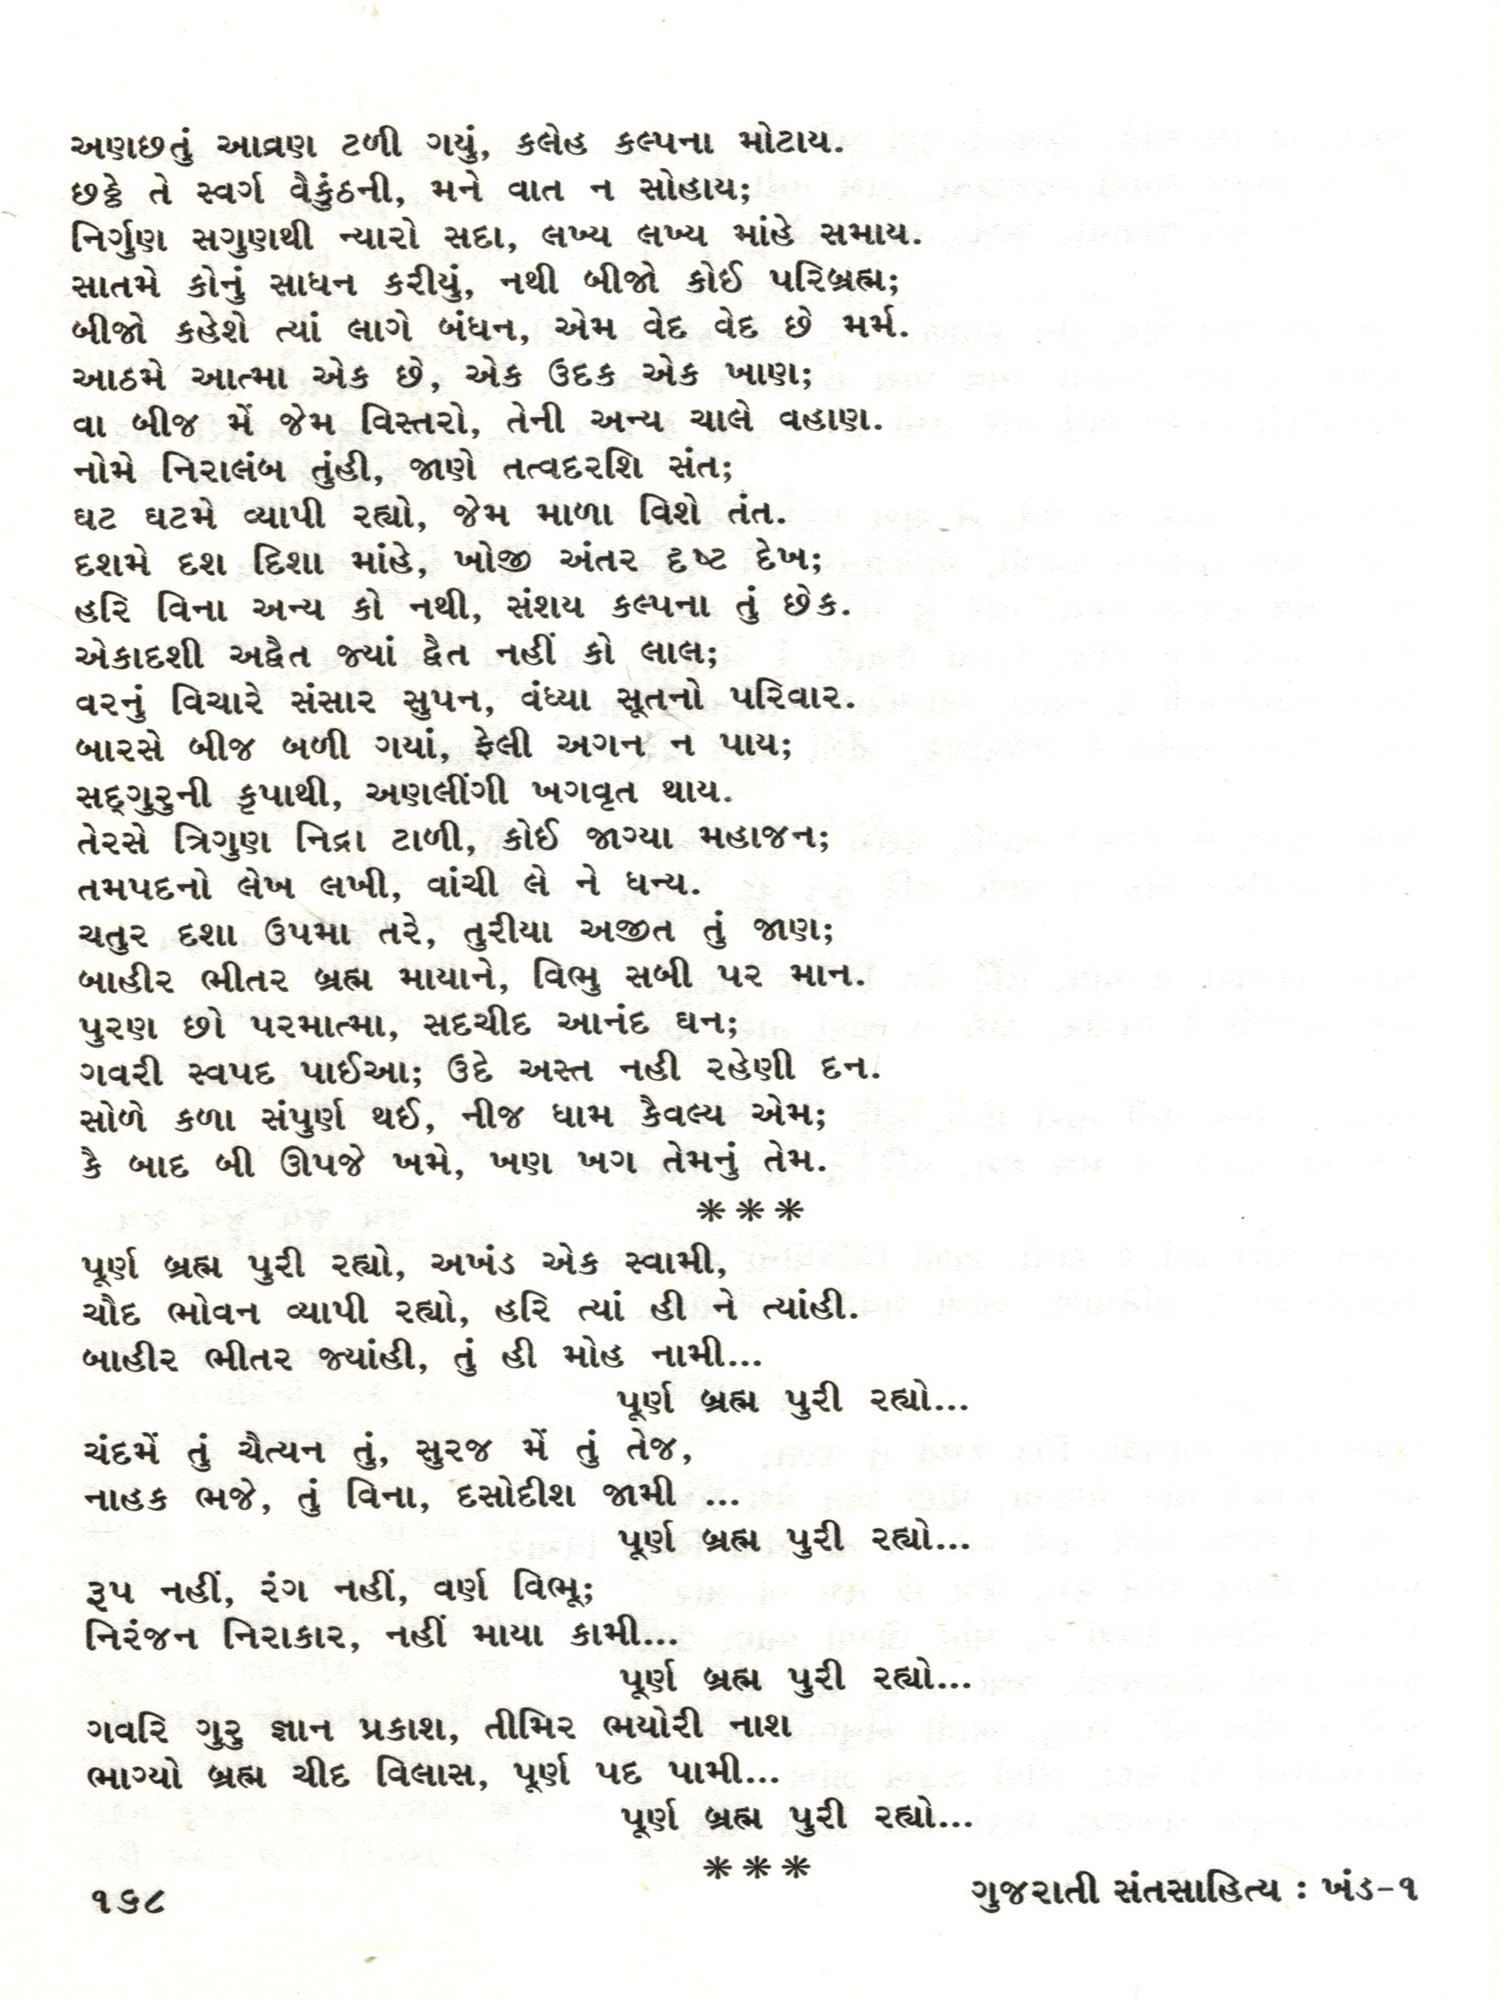 અણછતું આવ્રણ ટળી ગયું, કલેહ કલ્પના મોટાય.
છઠ્ઠે તે સ્વર્ગ વૈકુંઠની, મને વાત ન સોહાય;
નિર્ગુણ સગુણથી ન્યારો સદા, લખ્ય લખ્ય માંહે સમાય.
સાતમે કોનું સાધન કરીયું, નથી બીજો કોઈ પરિબ્રહ્મ;
બીજો કહેશે ત્યાં લાગે બંધન, એમ વેદ વેદ છે મર્મ.
આઠમે આત્મા એક છે, એક ઉદક એક ખાણ;
વા બીજ મેં જેમ વિસ્તરો, તેની અન્ય ચાલે વહાણ.
નોમે નિરાલંબ તુંહી, જાણે તત્વદરશિ સંત;
ઘટ ઘટમે વ્યાપી રહ્યો, જેમ માળા વિશે તંત.
દશમે દશ દિશા માંહે, ખોજી અંતર દૃષ્ટ દેખ;
હરિ વિના અન્ય કો નથી, સંશય કલ્પના તું છેક.
એકાદશી અદ્વૈત જ્યાં દ્વૈત નહીં કો લાલ;
વરનું વિચારે સંસાર સુપન, વંધ્યા સૂતનો પરિવાર.
બારસે બીજ બળી ગયાં, ફેલી અગન ન પાય;
સદ્‌ગુરુની કૃપાથી, અણલીંગી ખગવૃત થાય.
તેરસે ત્રિગુણ નિદ્રા ટાળી, કોઈ જાગ્યા મહાજન;
તમપદનો લેખ લખી, વાંચી લે ને ધન્ય.
ચતુર દશા ઉપમા તરે, તુરીયા અજીત તું જાણ;
બાહીર ભીતર બ્રહ્મ માયાને, વિભુ સબી પર માન.
પુરણ છો પરમાત્મા, સદચીદ આનંદ ઘન;
ગવરી સ્વપદ પાઈઆ; ઉદે અસ્ત નહી રહેણી દન.
સોળે કળા સંપુર્ણ થઈ, નીજ ધામ કૈવલ્ય એમ;
કૈ બાદ બી ઊપજે ખમે, ખણ ખગ તેમનું તેમ.
***
પૂર્ણ બ્રહ્મ પુરી રહ્યો, અખંડ એક સ્વામી,
ચૌદ ભોવન વ્યાપી રહ્યો, હરિ ત્યાં હી ને ત્યાંહી.
બાહીર ભીતર જ્યાંહી, તું હી મોહ નામી...
પૂર્ણ બ્રહ્મ પુરી રહ્યો...
ચંદમેં તું ચૈત્યન તું, સુરજ મેં તું તેજ,
નાહક ભજે, તું વિના, દસોદીશ જામી ...
પૂર્ણ બ્રહ્મ પુરી રહ્યો...
રૂપ નહીં, રંગ નહીં, વર્ણ વિભૂ;
નિરંજન નિરાકાર, નહીં માયા કામી...
પૂર્ણ બ્રહ્મ પુરી રહ્યો...
ગવરિ ગુરુ જ્ઞાન પ્રકાશ, તીમિર ભયોરી નાશ
ભાગ્યો બ્રહ્મ ચીદ વિલાસ, પૂર્ણ પદ પામી...
પૂર્ણ બ્રહ્મ પુરી રહ્યો...
***
૧૬૮
ગુજરાતી સંતસાહિત્ય : ખંડ-૧